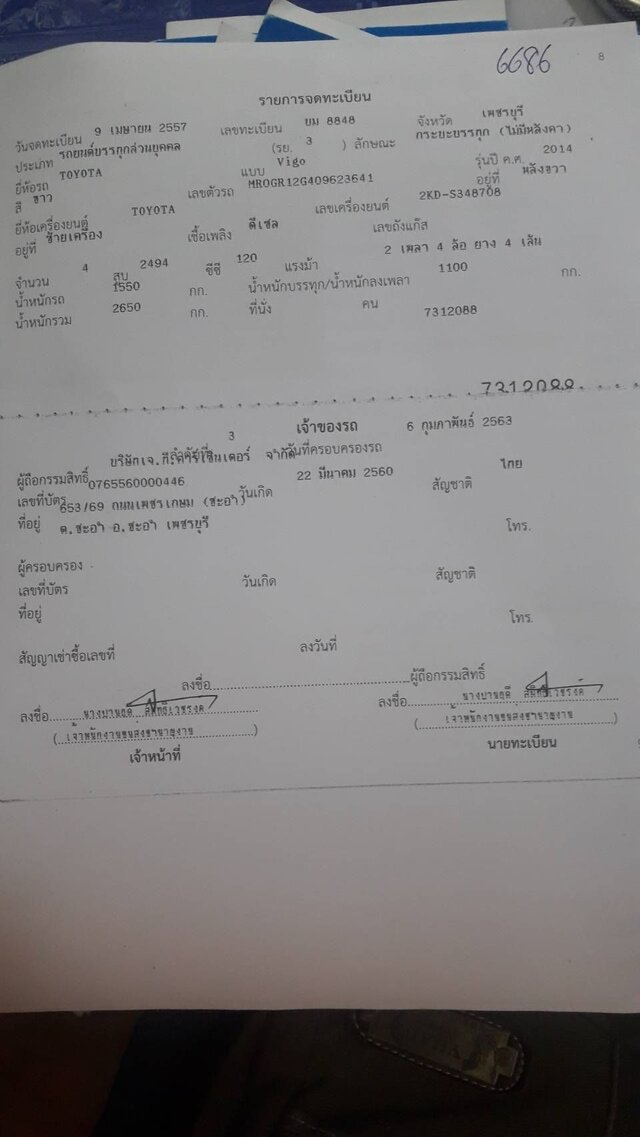 6686
8
รายการจดทะเบียน
วันจดทะเบียน 9 เมษายน 2557 เลขทะเบียน ยม 8848 จังหวัด เพชรบุรี
ประเภท รถยนต์บรรทุกส่วนบุคคล (รย. 3 ) ลักษณะ กระบะบรรทุก (ไม่มีหลังคา)
ยี่ห้อรถ TOYOTA แบบ Vigo รุ่นปี ค.ศ. 2014
สี ขาว เลขตัวรถ MR0GR12G409623641 อยู่ที่ หลังขวา
ยี่ห้อเครื่องยนต์ TOYOTA เลขเครื่องยนต์ 2KD-S348708
อยู่ที่ ซ้ายเครื่อง เชื้อเพลิง ดีเซล เลขถังแก๊ส
จำนวน 4 สูบ 2494 ซีซี 120 แรงม้า 2 เพลา 4 ล้อ ยาง 4 เส้น
น้ำหนักรถ 1550 กก. น้ำหนักบรรทุก/น้ำหนักลงเพลา 1100 กก.
น้ำหนักรวม 2650 กก. ที่นั่ง คน 7312088
7312088
เจ้าของรถ
ลำดับที่ 3 วันที่ครอบครองรถ 6 กุมภาพันธ์ 2563
ผู้ถือกรรมสิทธิ์ บริษัทเจ.ที.คาร์เซ็นเตอร์ จำกัด
เลขที่บัตร 0765560000446 วันเกิด 22 มีนาคม 2560 สัญชาติ ไทย
ที่อยู่ 653/69 ถนนเพชรเกษม (ชะอำ)
ต.ชะอำ อ.ชะอำ เพชรบุรี โทร.
ผู้ครอบครอง
เลขที่บัตร วันเกิด สัญชาติ
ที่อยู่ โทร.
สัญญาเช่าซื้อเลขที่ ลงวันที่
ลงชื่อ ผู้ถือกรรมสิทธิ์
ลงชื่อ ลงชื่อ
(เจ้าพนักงานขนส่งชำนาญงาน) (เจ้าพนักงานขนส่งชำนาญงาน)
เจ้าหน้าที่ นายทะเบียน